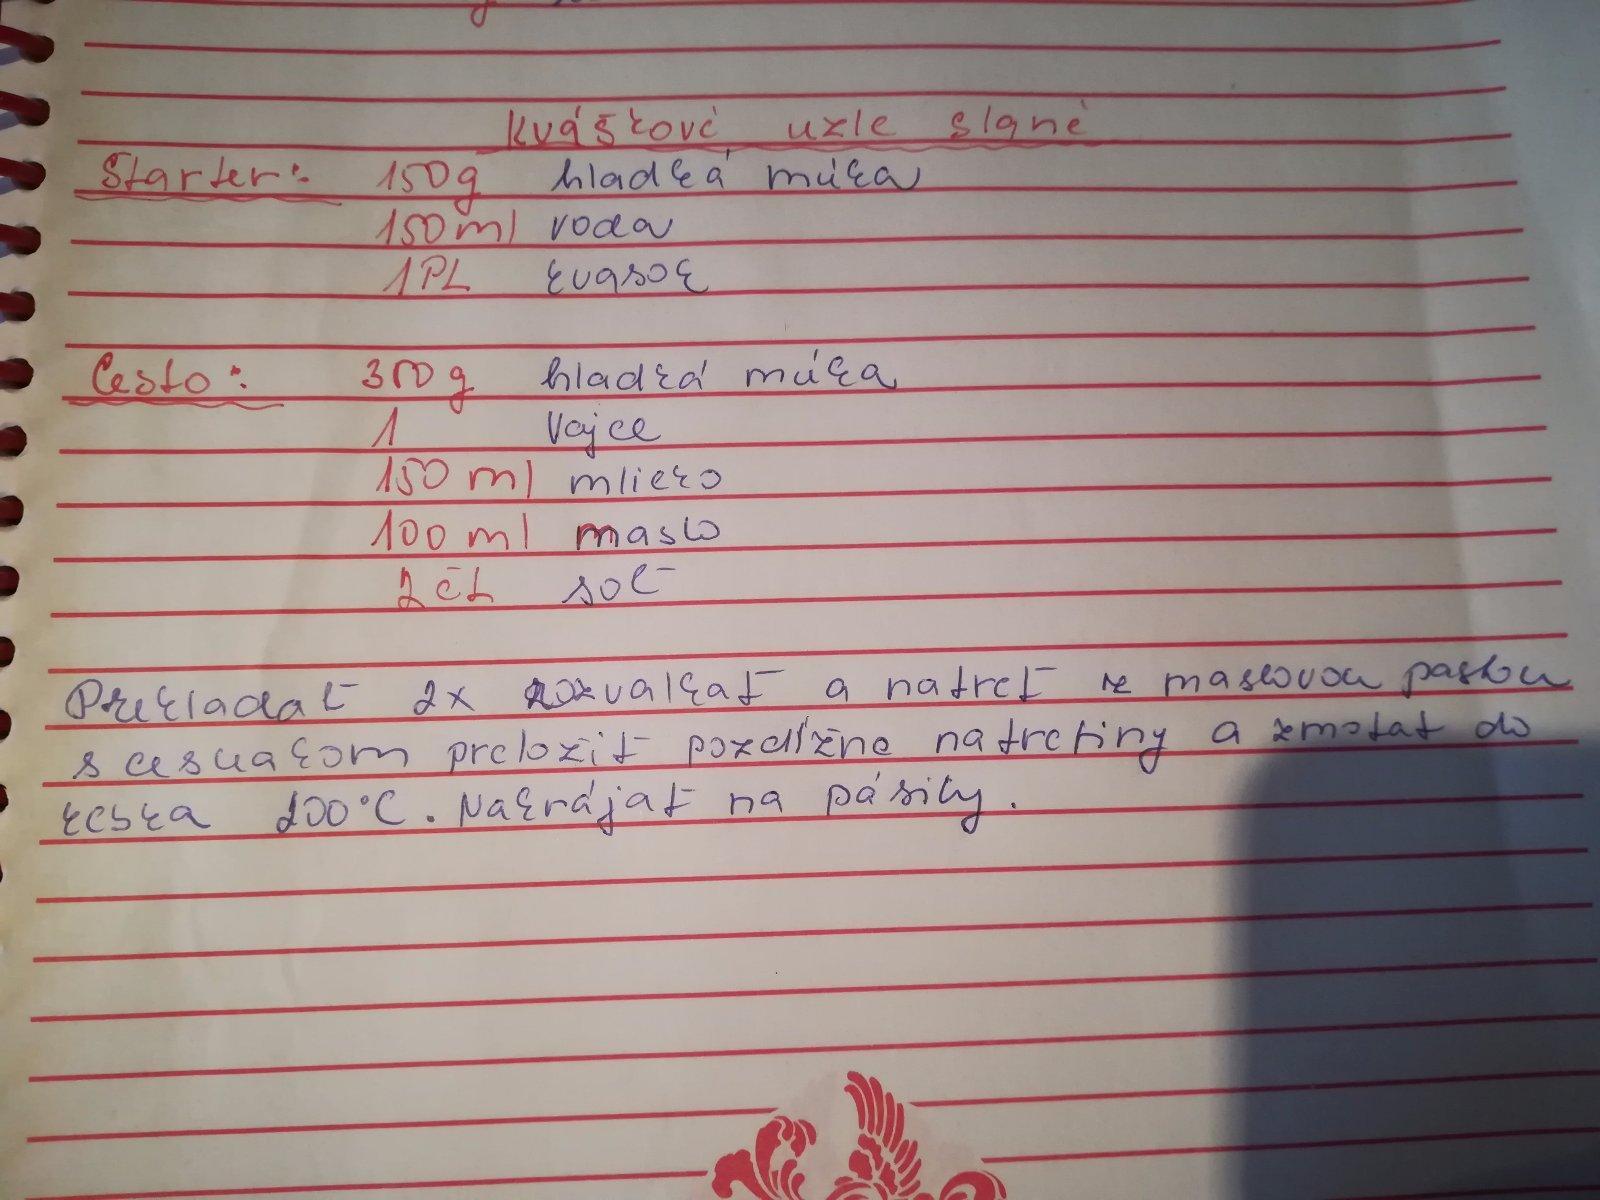 Kváskové uzle slané
Starter: 150g hladká múka
150ml voda
1PL kvasok
Cesto: 350g hladká múka
1 vajce
150 ml mlieko
100 ml maslo
2 čL soľ
Prekladať 2x rozvalkať a natreť ze maslovou pastou
s cesnakom preložiť pozdĺžne na tretiny a zmotať do
klbka 200°C. Nakrájať na pásiky.